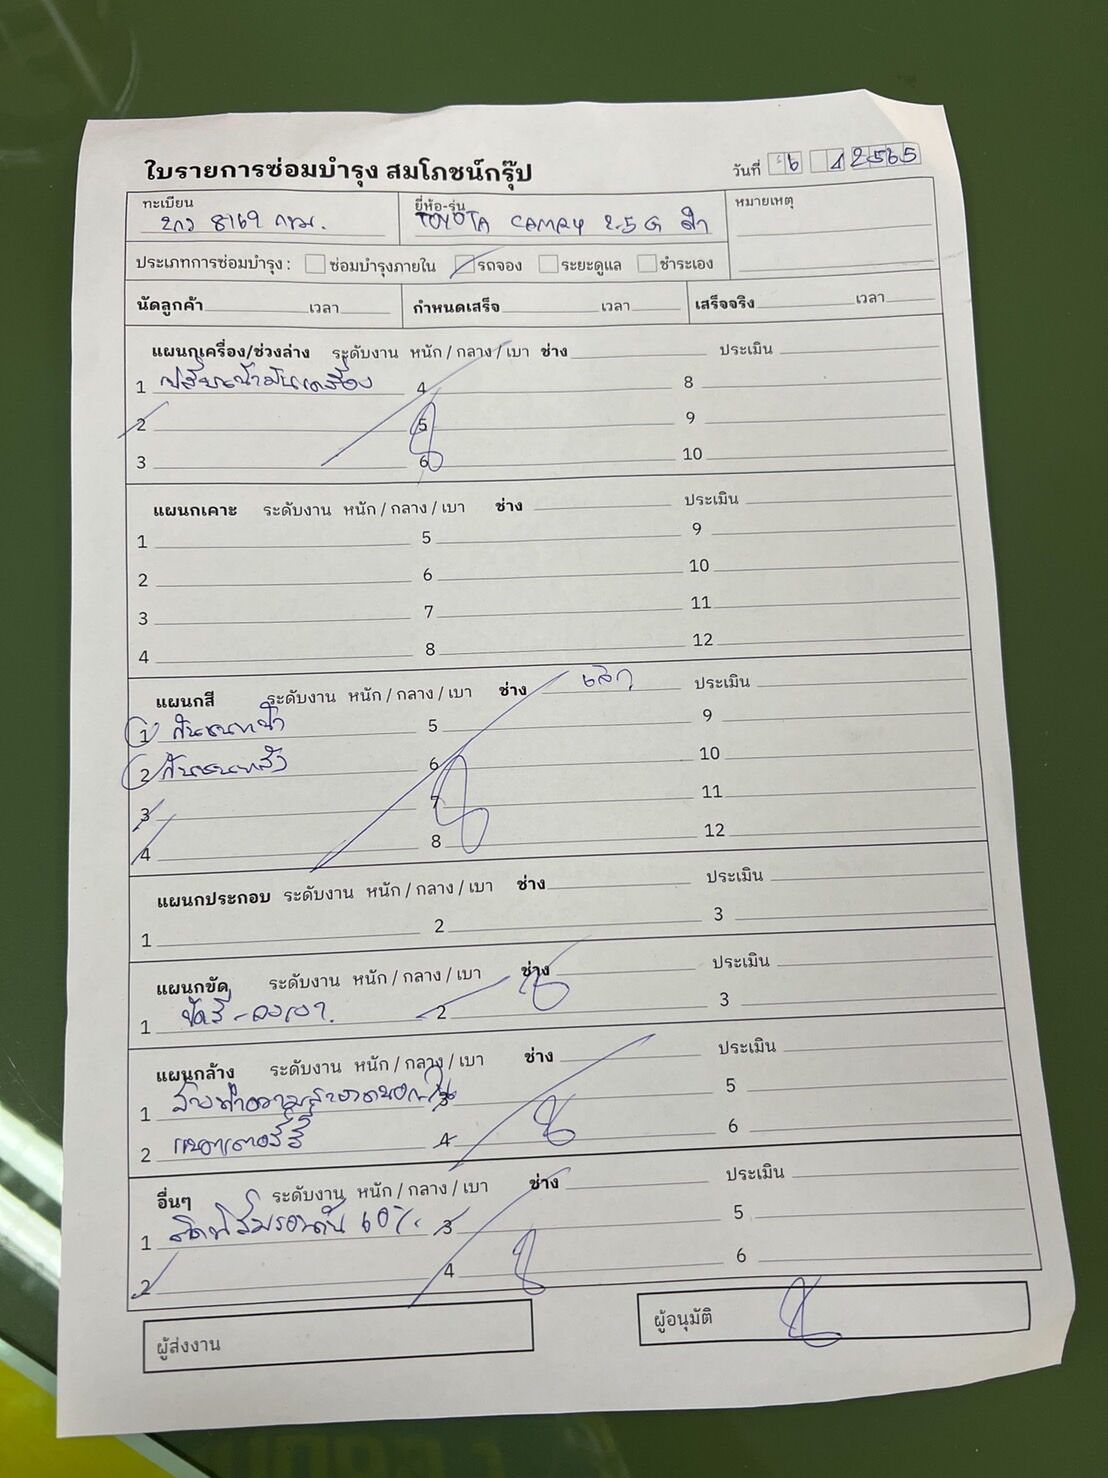 ใบรายการซ่อมบำรุง สมโภชน์กรุ๊ป
วันที่ 6 12565
ทะเบียน
8169 กทม.
ยี่ห้อ-รุ่น
TOYOTA CAMRY 2.5 G ดำ
หมายเหตุ
ประเภทการซ่อมบำรุง : ซ่อมบำรุงภายใน รถจอง ระยะดูแล ชำระเอง
นัดลูกค้า เวลา กำหนดเสร็จ เวลา เสร็จจริง เวลา
แผนกเครื่อง/ช่วงล่าง ระดับงาน หนัก / กลาง / เบา ช่าง ประเมิน
1 เปลี่ยนน้ำมันเครื่อง 4 8
2 5 9
3 6 10
แผนกเคาะ ระดับงาน หนัก / กลาง / เบา ช่าง ประเมิน
1 5 9
2 6 10
3 7 11
4 8 12
แผนกสี ระดับงาน หนัก / กลาง / เบา ช่าง ประเมิน
1 กันชนหน้า 5 9
2 กันชนหลัง 6 10
3 7 11
4 8 12
แผนกประกอบ ระดับงาน หนัก / กลาง / เบา ช่าง ประเมิน
1 2 3
แผนกขัด ระดับงาน หนัก / กลาง / เบา ช่าง ประเมิน
1 ขัดสี - ลงเงา 2 3
แผนกล้าง ระดับงาน หนัก / กลาง / เบา ช่าง ประเมิน
1 ล้างทำความสะอาด 3 5
2 แบตเตอรี่ 4 6
อื่นๆ ระดับงาน หนัก / กลาง / เบา ช่าง ประเมิน
1 ติดฟิล์มรอบคัน 60% 3 5
2 4 6
ผู้ส่งงาน
ผู้อนุมัติ